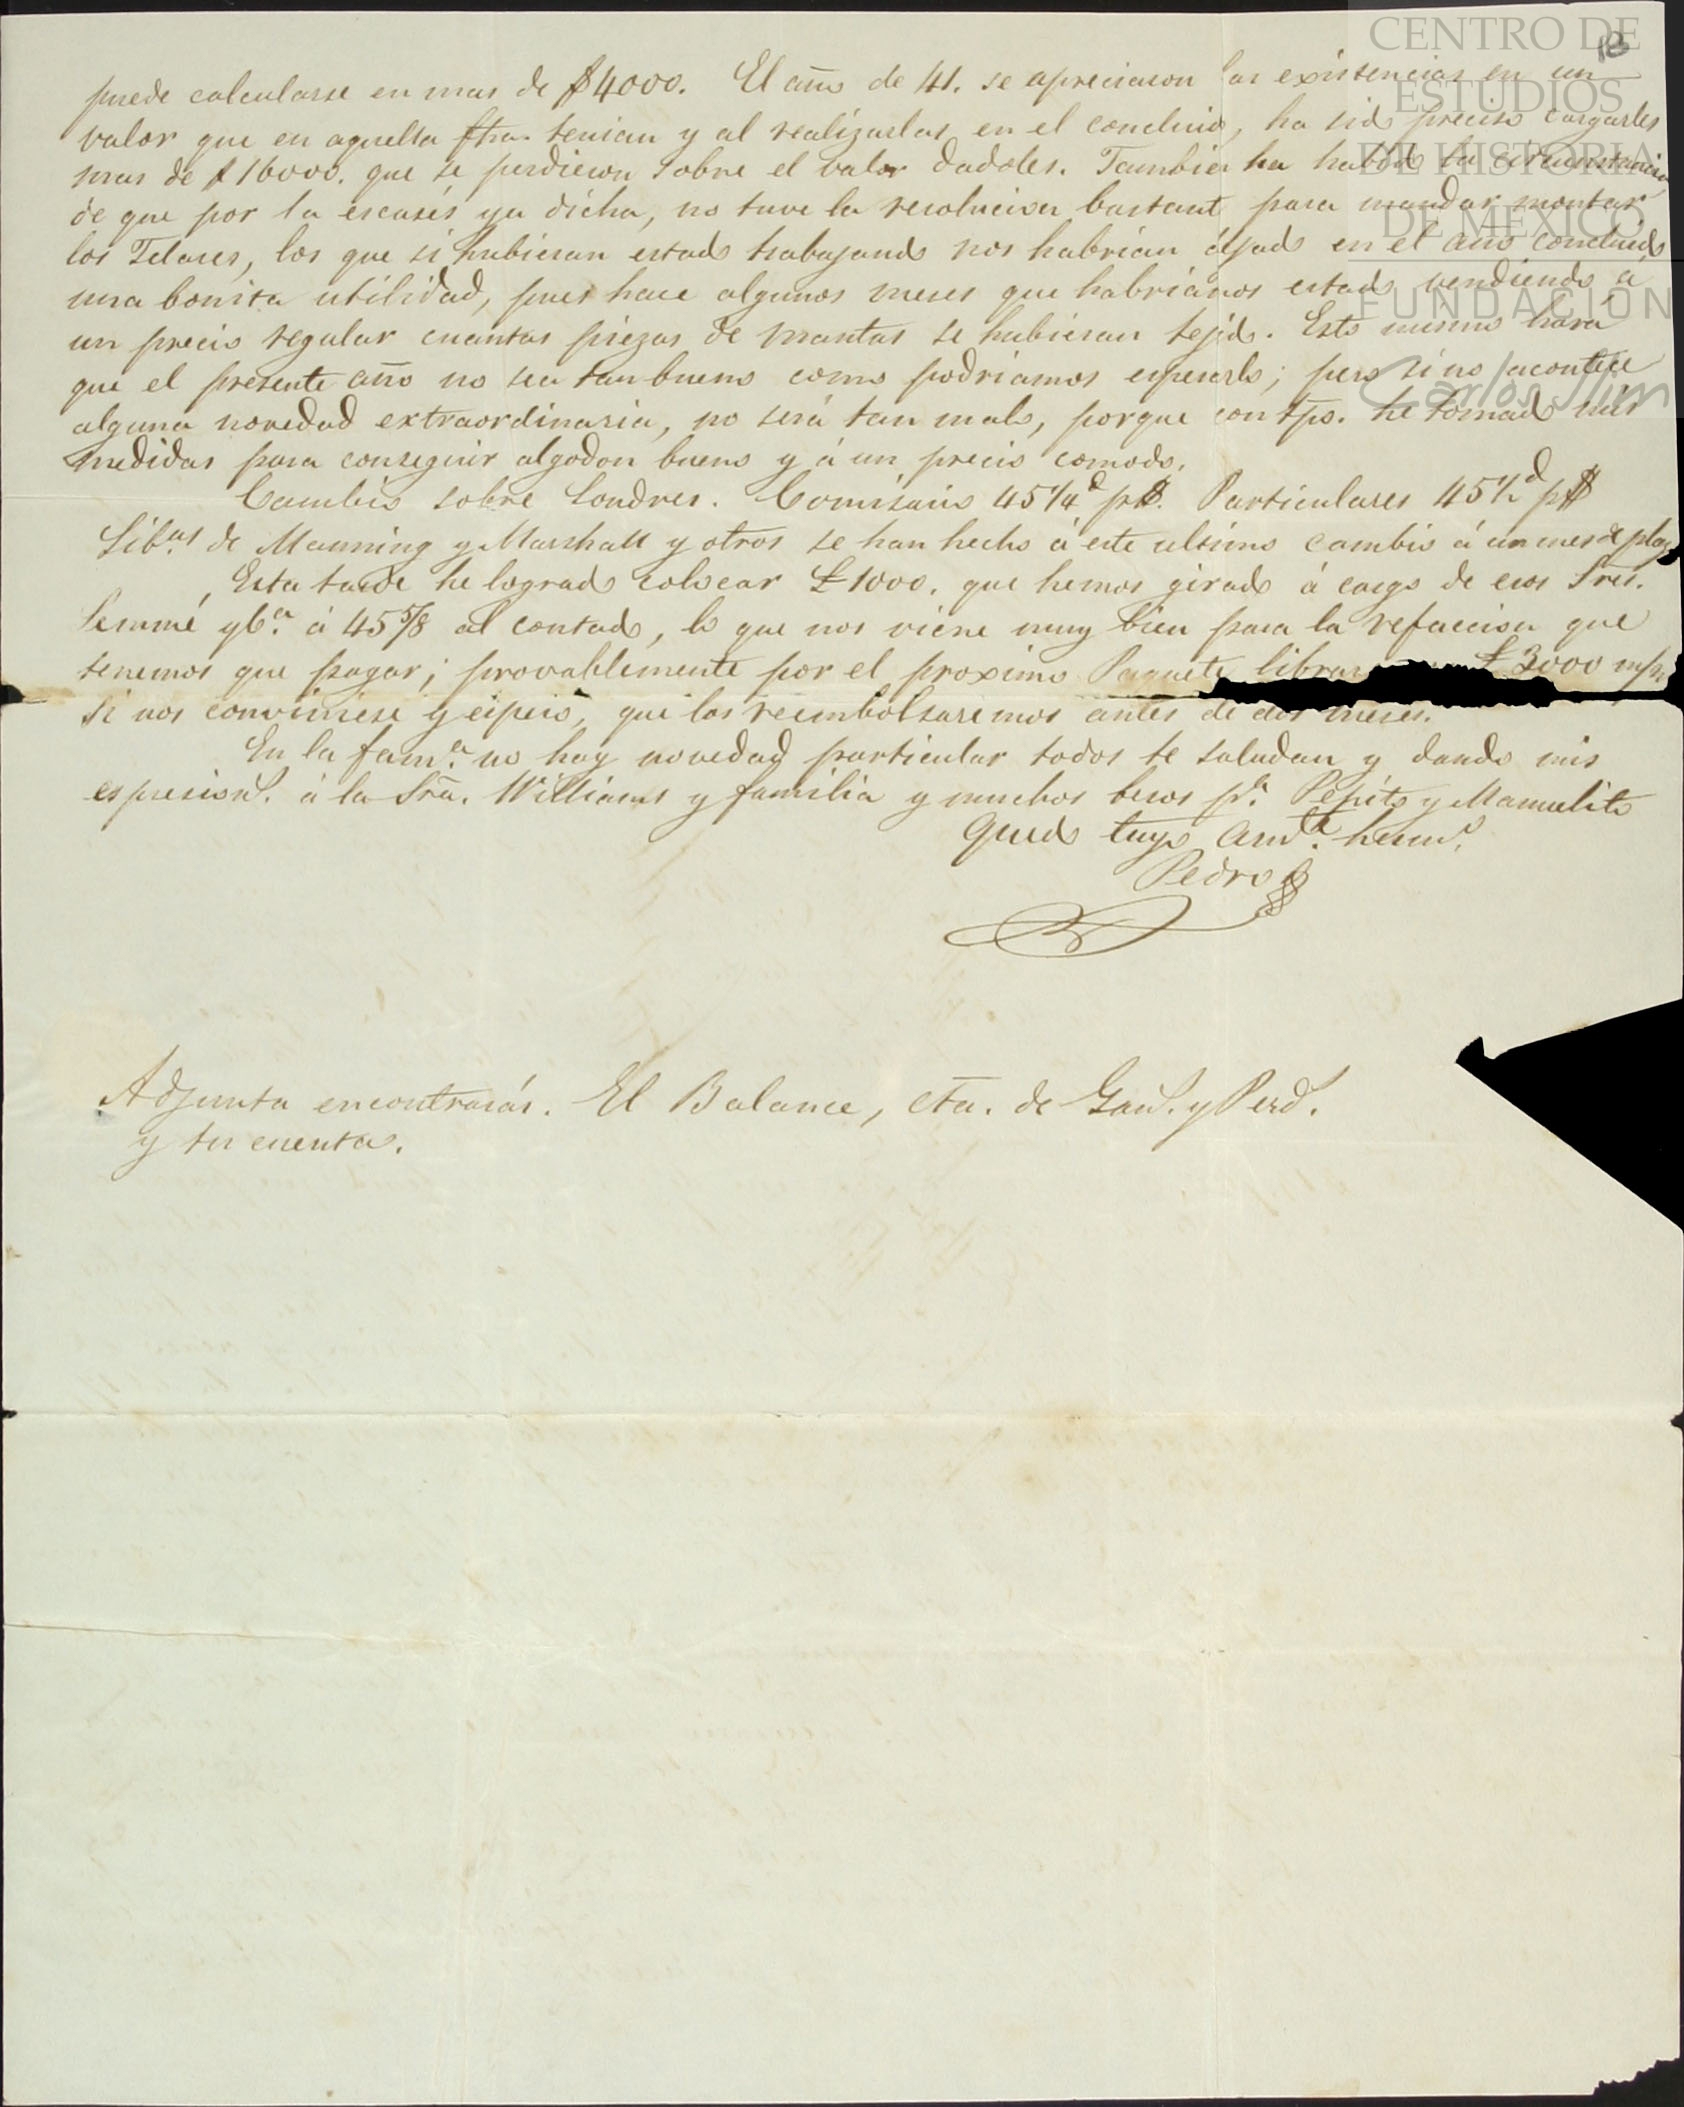 CENTRO DE
ESTUDIOS
DE HISTORIA
DE MEXICO
FUNDACIÓN
Carlos Slim
13
puede calcularse en mas de $4000. El año de 41. se apreciaron las existencias en un
valor que en aquella fha. tenian y al realizarlas en el concluido, ha sido preciso cargarles
mas de $16000. que se perdieron sobre el valor dadoles. Tambien ha habido la circunstancia
de que por la escasés ya dicha, no tuve la resolucion bastante para mandar montar
los Telares, los que si hubieran estado trabajando nos habrian dejado en el año concluido
una bonita utilidad, pues hace algunos meses que habriamos estado vendiendo á
un precio regular cuantas piezas de mantas se hubieran tejido. Esto mismo hará
que el presente año no sea tan bueno como podriamos esperarlo; pero si no acontece
alguna novedad extraordinaria, no será tan malo, porque con tpo. he tomado mis
medidas para conseguir algodon bueno y á un precio comodo.
Cambio sobre Londres. Comisario 45 1/4 d p$. Particulares 45 1/2 d p$
Lib.as de Manning y Marshall y otros se han hecho á este ultimo cambio á un mes de plazo
Esta tarde he logrado colocar £1000. que hemos girado á cargo de esos Sres.
Lemmé y C.a á 45 5/8 al contado, lo que nos viene muy bien para la refaccion que
tenemos que pagar; provablemente por el proximo Paquete £3000
si nos conviniese y espero, que las reembolsaremos antes de dos meses.
En la fam.a no hay novedad particular todos te saludan y dando mis
espresion.s á la Sra. Williams y familia y muchos besos p.a Pepito y Manuelito
quedo tuyo am.te herm.o
Pedro
Adjunta encontrarás. El Balance, cta. de Gan.s y Perd.s
y tu cuenta.